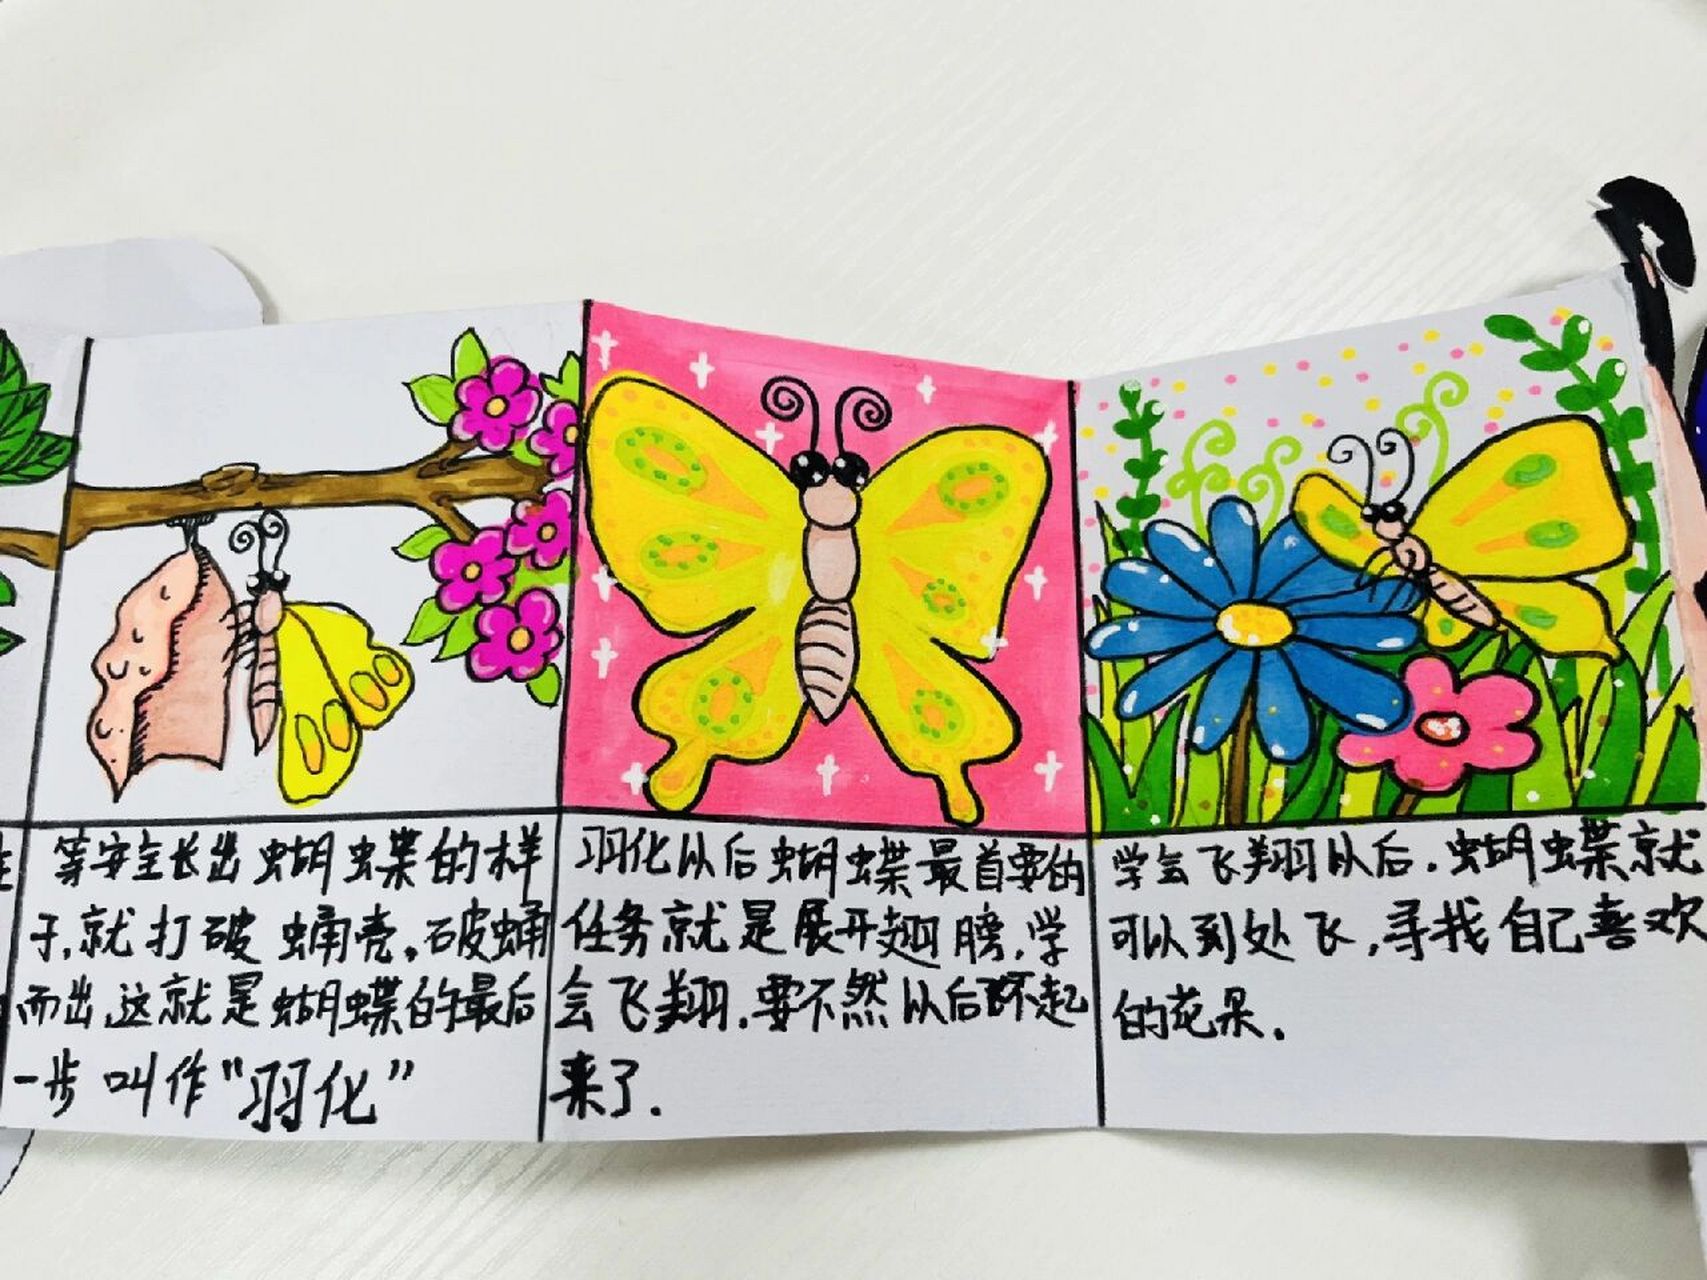 等安全长出蝴蝶的样
子,就打破蛹壳。破蛹
而出,这就是蝴蝶的最后
一步叫作“羽化”
羽化以后蝴蝶最首要的
任务就是展开翅膀,学
会飞翔.要不然以后飞不起
来了.
学会飞翔以后.蝴蝶就
可以到处飞,寻找自己喜欢
的花果.